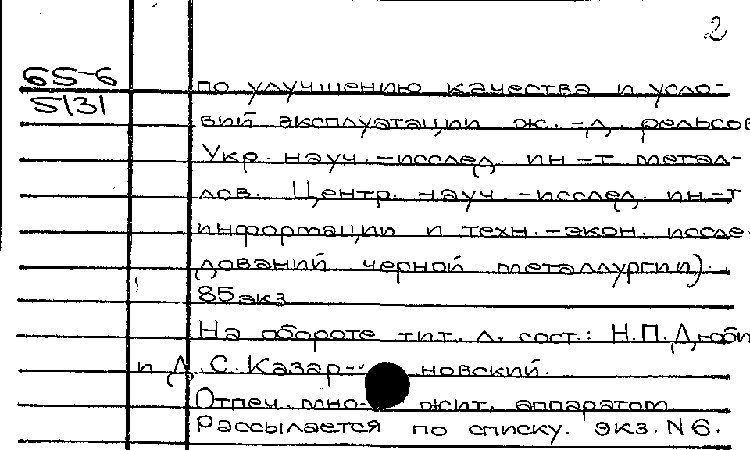 2
65-6
5131
по улучшению качества и усло-
вий эксплуатации ж.-д. рельсов
Укр. науч.-исслед. ин-т метал-
лов. Центр. науч.-исслед. ин-т
информации и техн.-экон. иссле-
дований черной металлургии).
85 экз
На обороте тит. л. сост.: Н.П. Дюби
и Д. С. Казар- новский.
Отпеч. мно- жит. аппаратом
Рассылается по списку. Экз. N6.